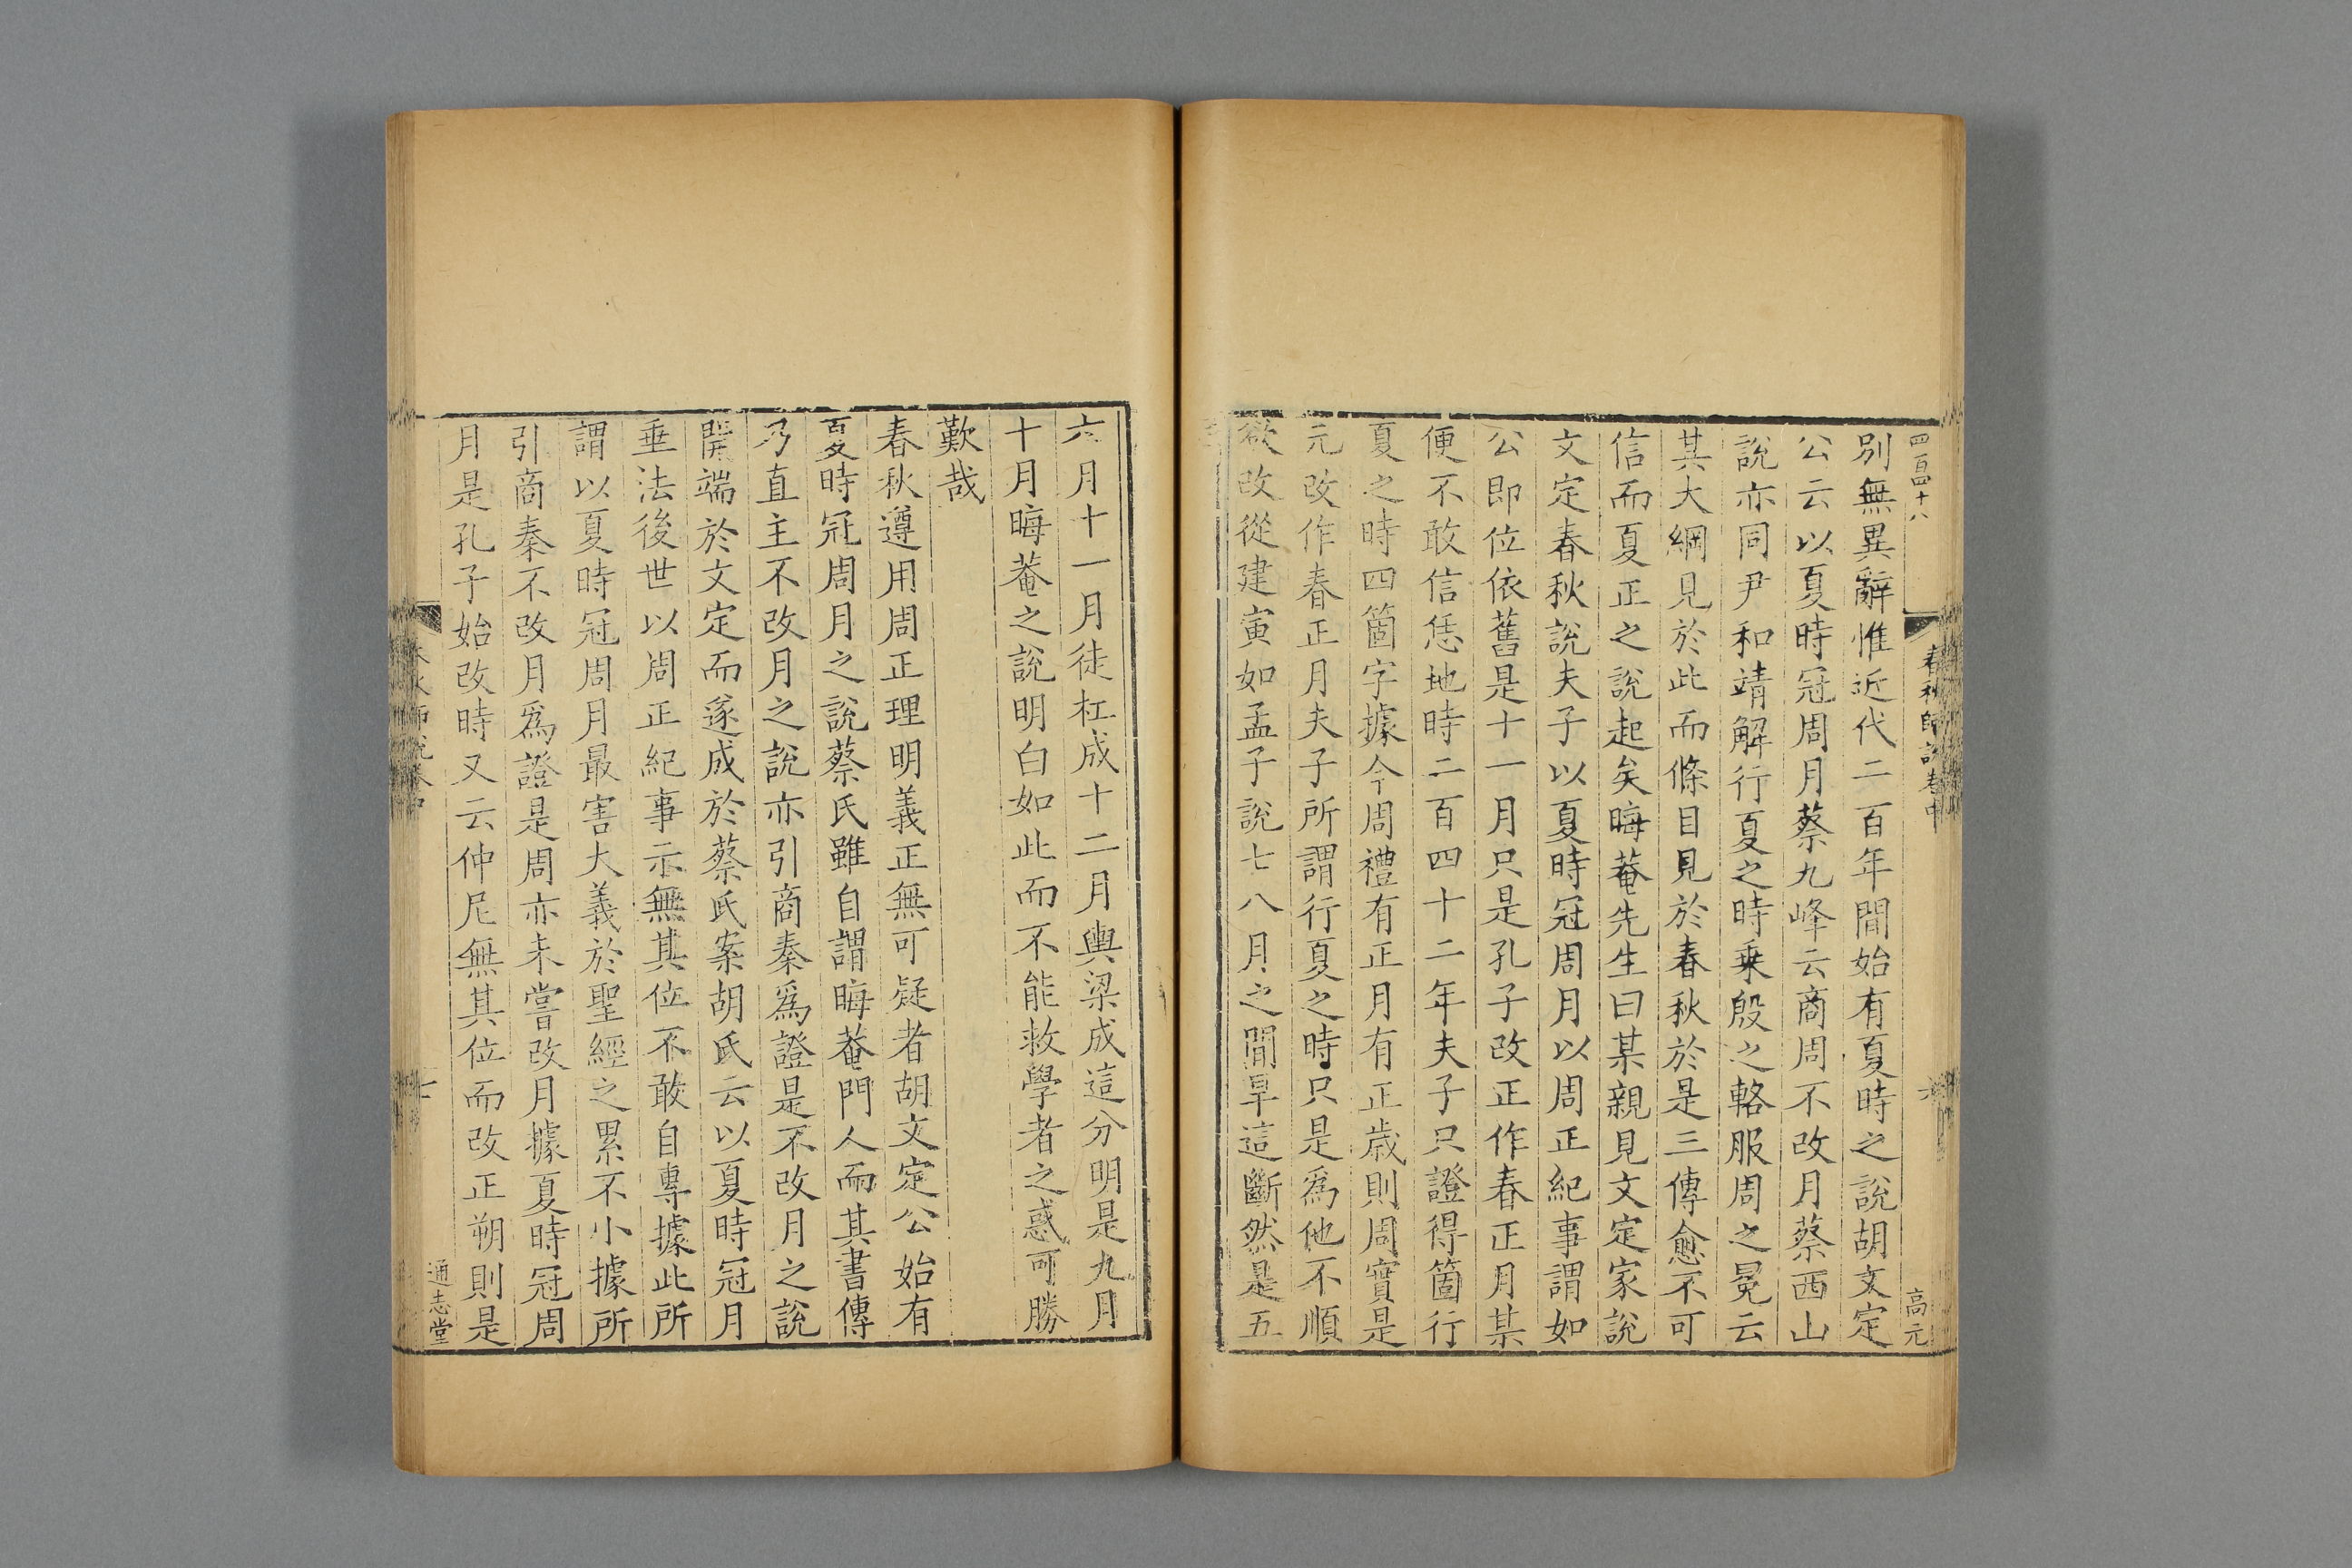 四百四十八
春秋師說卷中
六
高元
別無異辭惟近代二百年間始有夏時之說胡文定
公云以夏時冠周月蔡九峰云商周不改月蔡西山
說亦同尹和靖解行夏之時乗殷之輅服周之冕云
其大綱見於此而條目見於春秋於是三傳愈不可
信而夏正之說起矣晦菴先生曰某親見文定家說
文定春秋說夫子以夏時冠周月以周正紀事謂如
公即位依舊是十一月只是孔子改正作春正月某
便不敢信恁地時二百四十二年夫子只證得箇行
夏之時四箇字據今周禮有正月有正歲則周實是
元改作春正月夫子所謂行夏之時只是爲他不順
欲改從建寅如孟子說七八月之閒旱這斷然是五
六月十一月徒杠成十二月輿梁成這分明是九月
十月晦菴之說明白如此而不能救學者之惑可勝
歎哉
春秋遵用周正理明義正無可疑者胡文定公始有
夏時冠周月之說蔡氏雖自謂晦菴門人而其書傳
乃直主不改月之說亦引商秦爲證是不改月之說
開端於文定而遂成於蔡氏案胡氏云以夏時冠月
垂法後世以周正紀事示無其位不敢自專據此所
謂以夏時冠周月最害大義於聖經之累不小據所
引商秦不改月爲證是周亦未嘗改月據夏時冠周
月是孔子始改時又云仲尼無其位而改正朔則是
春秋師說卷中
七
通志堂